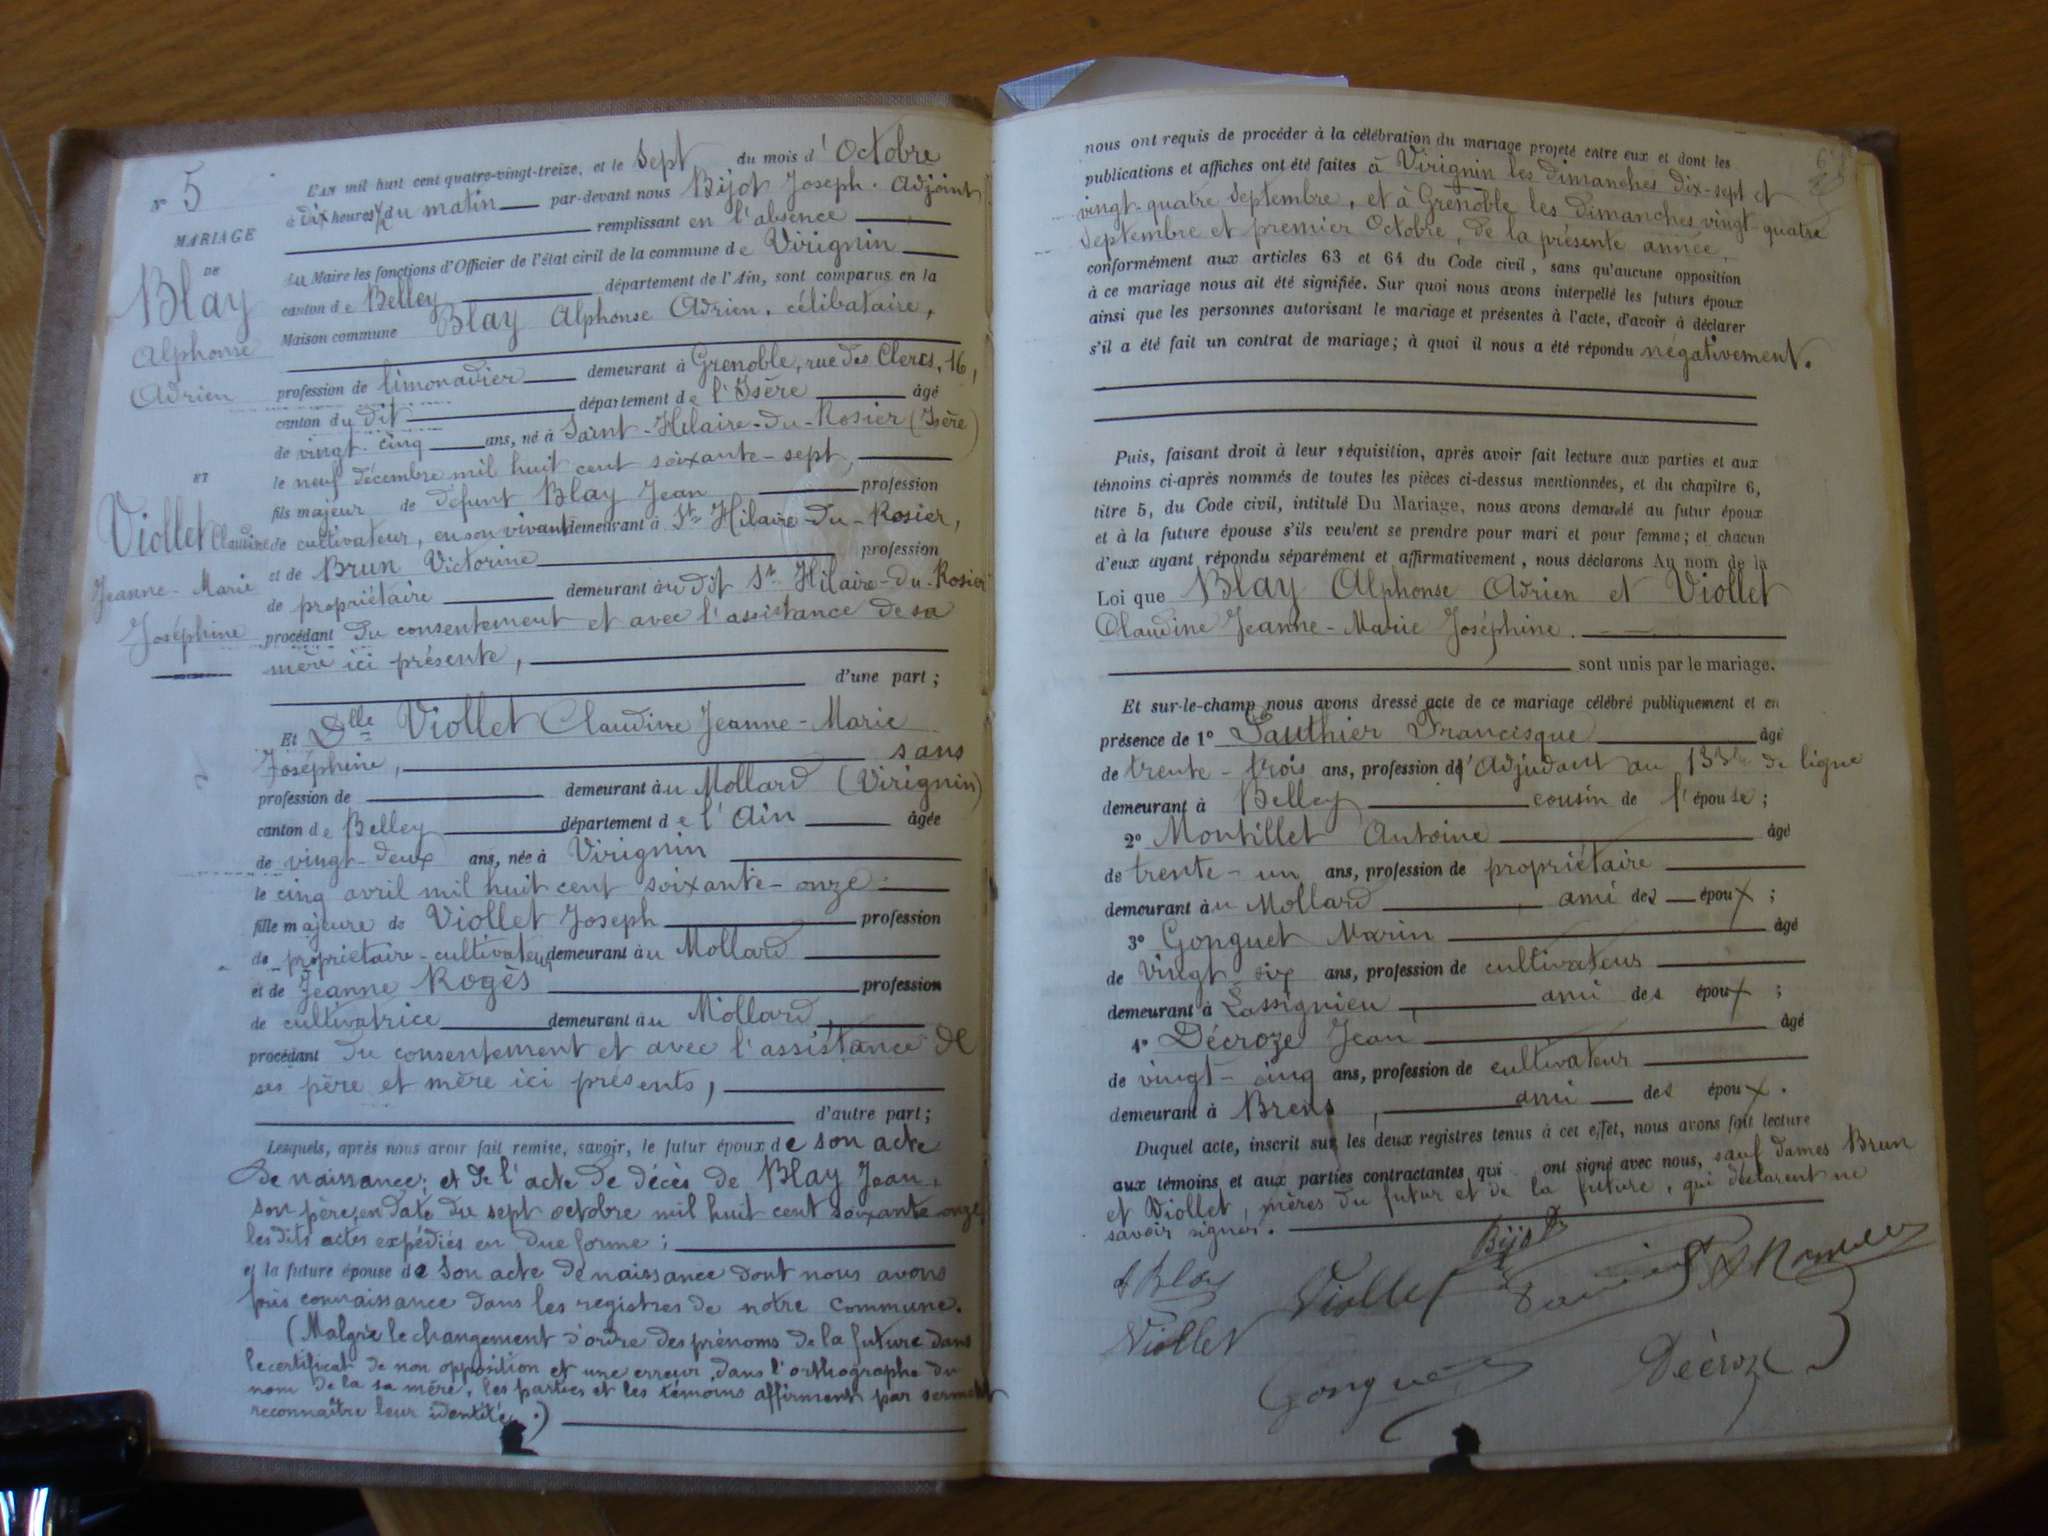 N° 5
MARIAGE
DE
Blay
Alphonse
Adrien
ET
Viollet Claudine
Jeanne-Marie
Joséphine
L'an mil huit cent quatre-vingt-treize, et le sept du mois d'Octobre
à dix heures du matin par-devant nous Bijot Joseph. Adjoint
remplissant en l'absence
du Maire les fonctions d'Officier de l'état civil de la commune de Virignin
canton de Belley département de l'Ain, sont comparus en la
Maison commune Blay Alphonse Adrien, célibataire,
profession de limonadier demeurant à Grenoble, rue des Clercs, 16,
canton du dit département de l'Isère âgé
de vingt-cinq ans, né à Saint-Hilaire-du-Rosier (Isère)
le neuf décembre mil huit cent soixante-sept,
fils majeur de défunt Blay Jean profession
de cultivateur, en son vivant demeurant à St Hilaire-du-Rosier,
et de Brun Victorine profession
de propriétaire demeurant au dit St Hilaire-du-Rosier
procédant du consentement et avec l'assistance de sa
mère ici présente,
d'une part;
Et Dlle Viollet Claudine Jeanne-Marie
Joséphine, sans
profession de demeurant au Mollard (Virignin)
canton de Belley département de l'Ain âgée
de vingt-deux ans, née à Virignin
le cinq avril mil huit cent soixante-onze.
fille majeure de Viollet Joseph profession
de propriétaire-cultivateur demeurant au Mollard
et de Jeanne Rogès profession
de cultivatrice demeurant au Mollard,
procédant du consentement et avec l'assistance de
ses père et mère ici présents,
d'autre part;
Lesquels, après nous avoir fait remise, savoir, le futur époux de son acte
de naissance; et de l'acte de décès de Blay Jean,
son père, en date du sept octobre mil huit cent soixante-onze,
les dits actes expédiés en due forme;
et la future épouse de son acte de naissance dont nous avons
pris connaissance dans les registres de notre commune.
(Malgré le changement d'ordre des prénoms de la future dans
le certificat de non opposition et une erreur dans l'orthographe du
nom de la sa mère, les parties et les témoins affirment par serment
reconnaître leur identité.)
nous ont requis de procéder à la célébration du mariage projeté entre eux et dont les
publications et affiches ont été faites à Virignin les dimanches dix-sept et
vingt-quatre Septembre, et à Grenoble les dimanches vingt-quatre
Septembre et premier Octobre, de la présente année,
conformément aux articles 63 et 64 du Code civil, sans qu'aucune opposition
à ce mariage nous ait été signifiée. Sur quoi nous avons interpellé les futurs époux
ainsi que les personnes autorisant le mariage et présentes à l'acte, d'avoir à déclarer
s'il a été fait un contrat de mariage; à quoi il nous a été répondu négativement.
Puis, faisant droit à leur réquisition, après avoir fait lecture aux parties et aux
témoins ci-après nommés de toutes les pièces ci-dessus mentionnées, et du chapitre 6,
titre 5, du Code civil, intitulé Du Mariage, nous avons demandé au futur époux
et à la future épouse s'ils veulent se prendre pour mari et pour femme; et chacun
d'eux ayant répondu séparément et affirmativement, nous déclarons Au nom de la
Loi que Blay Alphonse Adrien et Viollet
Claudine Jeanne-Marie Joséphine.
sont unis par le mariage.
Et sur-le-champ nous avons dressé acte de ce mariage célébré publiquement et en
présence de 1° Gauthier Francisque âgé
de trente-trois ans, profession d'Adjudant au 133e de ligne
demeurant à Belley cousin de l'épouse;
2° Montillet Antoine âgé
de trente-un ans, profession de propriétaire
demeurant au Mollard ami des époux;
3° Gonguet Marin âgé
de vingt six ans, profession de cultivateur
demeurant à Lassignieu, ami des époux;
4° Décroze Jean âgé
de vingt-cinq ans, profession de cultivateur
demeurant à Brens, ami des époux.
Duquel acte, inscrit sur les deux registres tenus à cet effet, nous avons fait lecture
aux témoins et aux parties contractantes qui ont signé avec nous, sauf dames Brun
et Viollet, mères du futur et de la future, qui déclarent ne
savoir signer.
Bijot
A Blay
Viollet
Viollet
Gonguet
Décroze